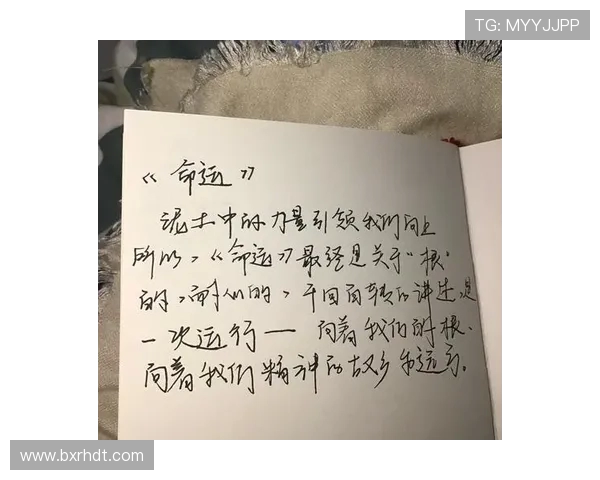 TG: MYYJJPP
《命运》
泥土中的力量引领我们向上
所以,《命运》最终是关于“根”
的,耐人的,千回百转的讲述,是
一次运行— 向着我们的根、
向着我们精神的故乡的运行。
www.bxrhdt.com